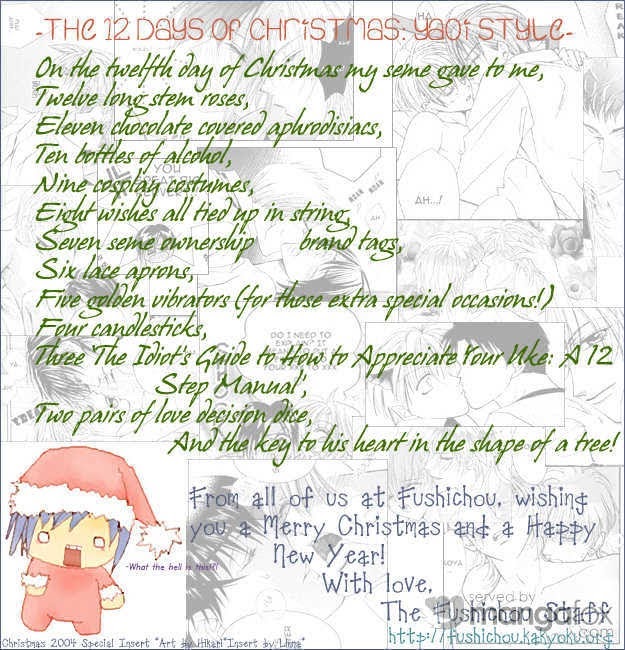 -THE 12 DAYS OF CHRISTMAS: YAOI STYLE-
On the twelfth day of Christmas my seme gave to me,
Twelve long stem roses,
Eleven chocolate covered aphrodisiacs,
Ten bottles of alcohol,
Nine cosplay costumes,
Eight wishes all tied up in string,
Seven seme ownership brand tags,
Six lace aprons,
Five golden vibrators (for those extra special occasions!)
Four candlesticks,
Three 'The Idiot's Guide to How to Appreciate Your Uke: A 12
Step Manual',
Two pairs of love decision dice,
And the key to his heart in the shape of a tree!
From all of us at Fushichou, wishing
you a Merry Christmas and a Happy
New Year!
With love,
The Fushichou Staff
http://fushichou.kakyoku.org
-What the hell is this?!!
Christmas 2004 Special Insert *Art by Hikari*Insert by
served by
mangafox
.com
HA!
AH...!
AH
YOU
DO I NEED TO
EXPLAIN? IT